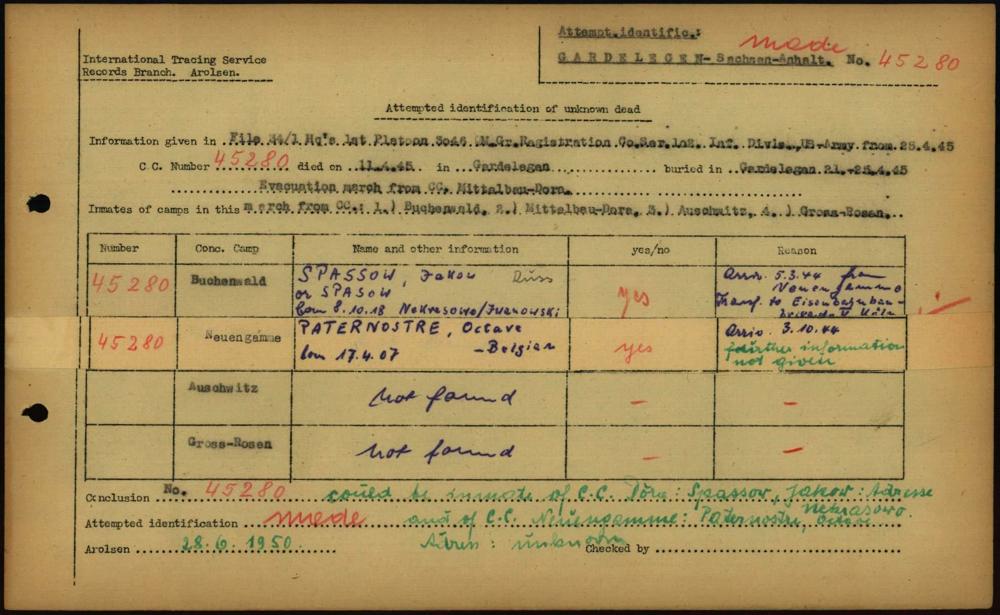 International Tracing Service
Records Branch. Arolsen.
Attempt.identific.:
GARDELEGEN-Sachsen-Anhalt. made No. 45280
Attempted identification of unknown dead
Information given in File 34/1 Hq's 1st Platoon 3046 QM.Gr.Registration Co.Ser.102. Inf. Divis.,US-Army.from 25.4.45
C.C. Number 45280 died on 11.4.45 in Gardelegen buried in Gardelegen 21.-25.4.45
Evacuation march from CC. Mittelbau-Dora.
Inmates of camps in this march from CC.: 1.) Buchenwald, 2.) Mittelbau-Dora, 3.) Auschwitz, 4.) Gross-Rosen.
Number Conc. Camp Name and other information yes/no Reason
45280 Buchenwald SPASSOW, Jakow Russ
or SPASOW
born 8.10.18 Nekrasowo/Iwanowski yes Arriv. 5.3.44 from
Neuengamme
Transf. to Eisenbahnbau-
brigade V Köln
45280 Neuengamme PATERNOSTRE, Octave
born 17.4.07 - Belgian yes Arriv. 3.10.44
further information
not given
Auschwitz not found - -
Gross-Rosen not found - -
Conclusion No. 45280 could be inmate of C.C. Dora: Spassow, Jakow: Adresse
Nekrasowo
Attempted identification made and of C.C. Neuengamme: Paternostre, Octave
Arolsen 28.6.1950. Adress: unknown Checked by